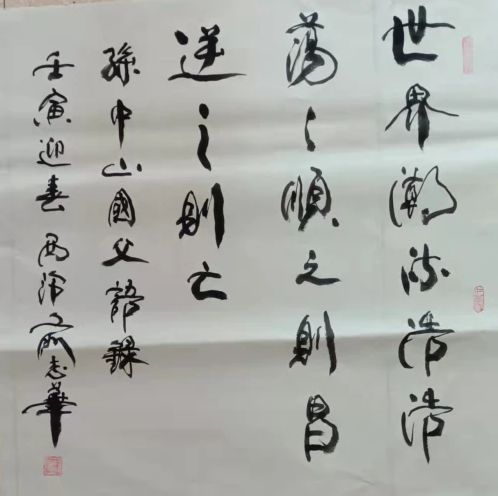 世界潮流浩浩
蕩々順之則昌
逆之則亡
孫中山國父語錄
壬寅迎春 西泠俞志華